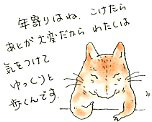 年寄りはね、こけたら
あとが大変だから わたしは
気をつけて
ゆっくりと
歩くんです。